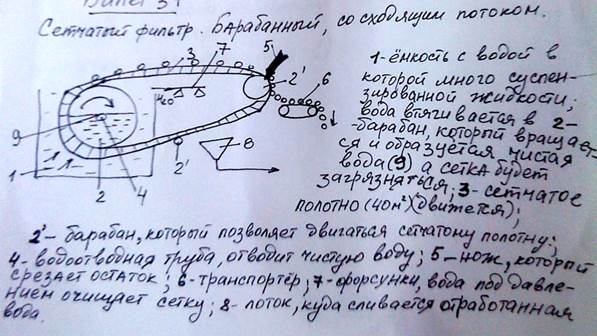 Билет 31
Сетчатый фильтр. Барабанный, со сходящим потоком.
1-ёмкость с водой в
которой много суспен-
зированной жидкости;
вода втягивается в 2-
-барабан, который вращает-
ся и образуется чистая
вода(9), а сетка будет
загрязняться; 3-сетчатое
полотно (40м²)(движется);
2'- барабан, который позволяет двигаться сетчатому полотну;
4-водоотводная труба, отводит чистую воду; 5-нож, который
срезает остаток; 6-транспортёр; 7-форсунки, вода под давле-
нием очищает сетку; 8-лоток, куда сливается отработанная
вода.
3
7
5
2'
6
H₂O
9
8
1
2
4
2'